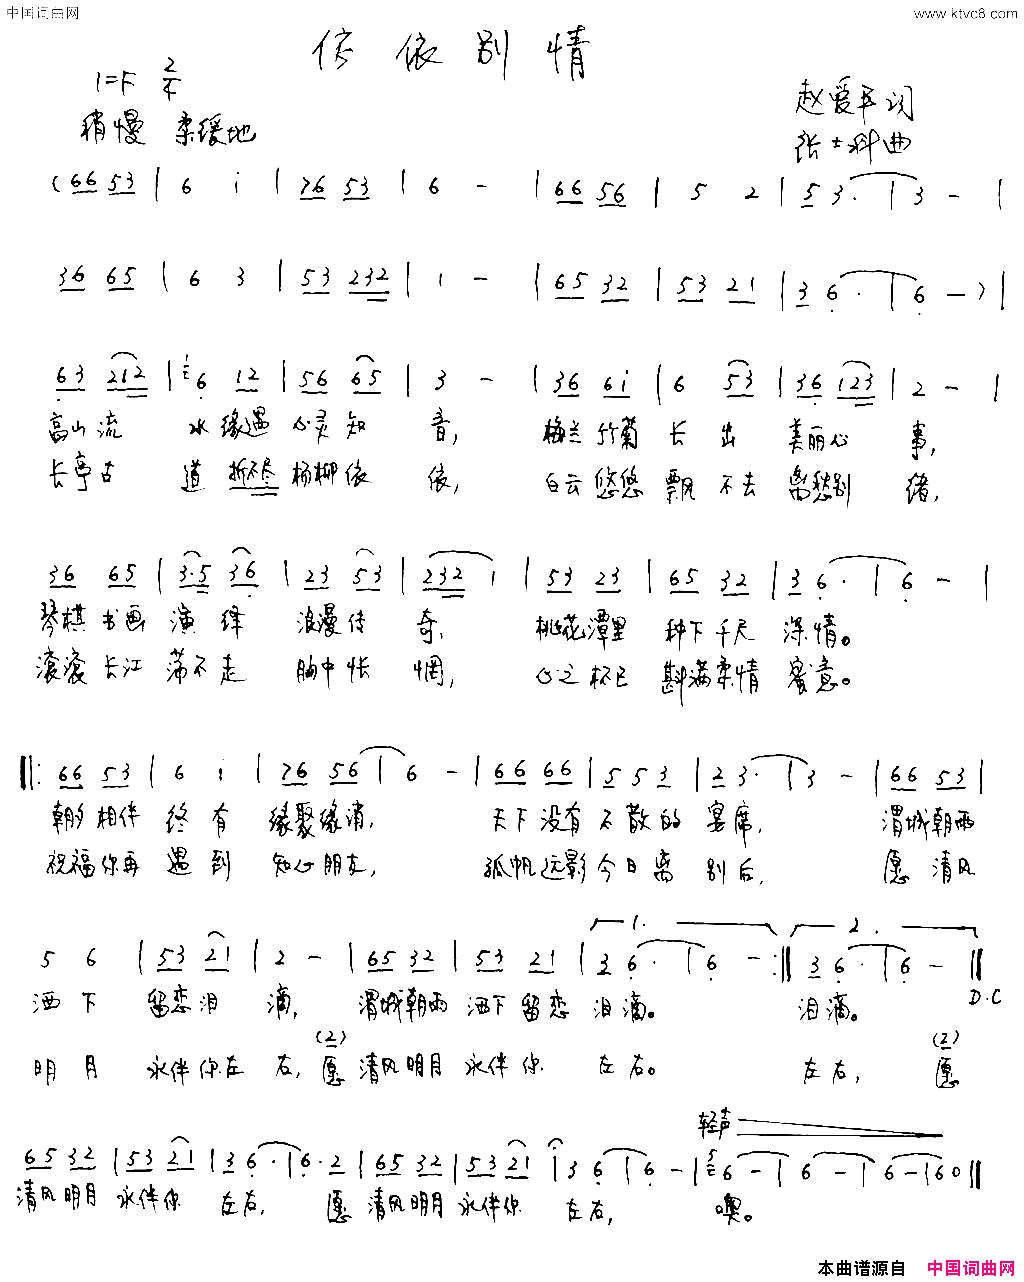 中国词曲网
www.ktvc8.com
依依别情
1=F 2/4
稍慢 柔缓地
赵爱平词
张士科曲
(66 53 | 6 i | 76 53 | 6 - | 66 56 | 5 2 | 5 3. | 3 - |
36 65 | 6 3 | 53 232 | 1 - | 65 32 | 53 21 | 3 6. | 6 -) |
63 212 | 6 12 | 56 65 | 3 - | 36 6i | 6 53 | 36 123 | 2 - |
高山流 水缘遇 心灵知 音, 梅兰竹菊 长出 美丽心 事,
长亭古 道折不尽 杨柳依 依, 白云悠悠 飘不去 离愁别 绪,
36 65 | 3.5 36 | 23 53 | 232 1 | 53 23 | 65 32 | 3 6. | 6 - |
琴棋书画 演绎 浪漫传 奇, 桃花潭里 种下千尺 深情。
滚滚长江 荡不走 胸中怅 惘, 心之杯已 斟满柔情 蜜意。
||: 66 53 | 6 i | 76 56 | 6 - | 66 66 | 5 5 3 | 2 3. | 3 - | 66 53 |
朝夕相伴 终有 缘聚缘消, 天下没有 不散的 宴席, 渭城朝雨
祝福你再 遇到 知心朋友, 孤帆远影 今日离 别后, 愿清风
1. 2.
5 6 | 53 21 | 2 - | 65 32 | 53 21 | 3 6. | 6 - :|| 3 6. | 6 - ||
D.C
洒下 留恋泪 滴, 渭城朝雨 洒下留恋 泪滴。 泪滴。
(2) (2)
明月 永伴你左 右, 愿 清风明月 永伴你 左右。 左右, 愿
轻声
65 32 | 53 21 | 3 6. | 6. 2 | 65 32 | 53 21 | 3 6 | 6 - | 6 - | 6 - | 6 - | 60 ||
清风明月 永伴你 左右, 愿 清风明月 永伴你 左右, 噢。
本曲谱源自 中国词曲网